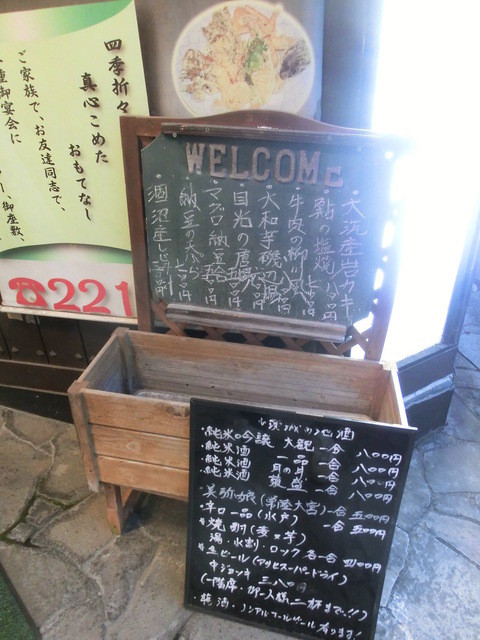 四季折々
真心こめた
おもてなし
ご家族で、お友達同志で、
御宴会に
御座敷、
☎221
WELCOME
・大洗産岩ガキ
・鮎の塩焼 八〇〇円
・牛肉の柳川風
・大和芋磯辺揚
・目光の唐揚
・マグロ納豆
・納豆の天ぷら
・涸沼産しじみ汁
地酒
・純米吟醸 大観 一合 八〇〇円
・純米酒 一品 一合 八〇〇円
・純米酒 月の井 一合 八〇〇円
・純米酒 一合 八〇〇円
(常陸大宮) 一合 五〇〇円
辛口一品(水戸) 一合 五〇〇円
焼酎(麦・芋)
湯・水割・ロック 各一合
生ビール(アサヒスーパードライ)
中ジョッキ 三八〇円
(一階席・御一人様、二杯まで!!)
・梅酒・ノンアルコールビール有ります!